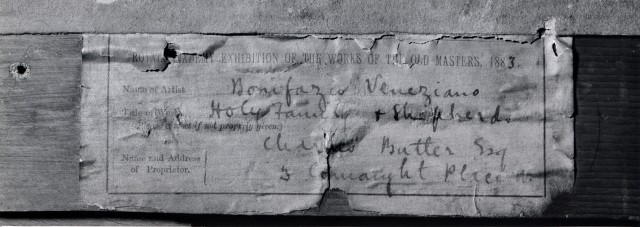 ROYAL ACADEMY EXHIBITION OF THE WORKS OF THE OLD MASTERS, 1883.
Name of Artist Bonifazio Veneziano
Title of Holy Family & Shepherds
if not properly given.)
Charles Butler Esq
Name and Address
of Proprietor. 3 Connaught Place